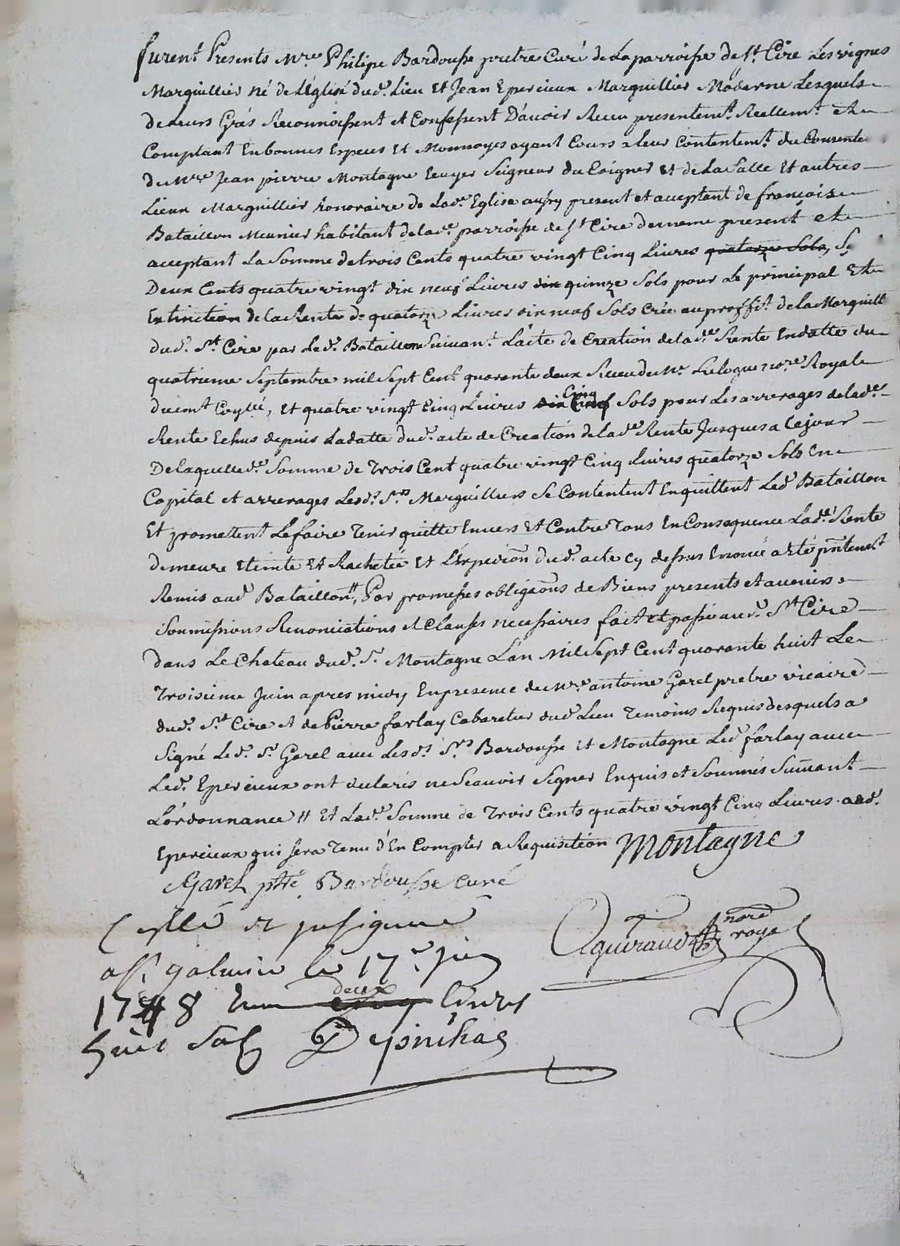 furent Presents Mre Philipe Bardousse pretre Curé de La parroisse de St. Cire Les vignes
Marguillier né de L'église dud. Lieu Et Jean Epercieux Marguillier Moderne Lesquels
de Leurs Grés Reconnoissent et Confessent D'avoir Receu presentemt. Reellemt. et
Comptant En bonnes Especes et Monnoyes ayant Cours a leur Contentemt. du Consente
du Mre Jean pierre Montagne Ecuyer Seigneur du Poigner et de La Salle Et autres
Lieux Marguillier honoraire de Lade. Eglise aussy present et acceptant de françois
Bataillon Meunier habitant de lade. parroisse de St Cire de meme present et
acceptant La Somme de trois Cents quatre vingt Cinq Livres quatorze Sols,
Deux Cents quatre vingt dix neuf Livres dix quinze Sols pour Le principal Et
Extinction de La Rente de quatorze Livres dix neuf Sols Créé au proffit. de La Marguill
dud. St. Cire par Led. Bataillon Suivant. L'acte de Creation de lade. Rente En datte du
quatrieme Septembre mil Sept Cent quarante deux Receu de Me Lulogue nore Royal
duemt Collé, et quatre vingt Cinq Livres dix Cinq Cinq Sols pour Les arrerages de lade.
Rente Echus depuis La datte dud. acte de Creation de lade. Rente Jusques a Ce jour
De laquelle d. Somme de Trois Cent quatre vingt Cinq Livres quatorze Sols En
Capital et arrerages Lesd. Srs Marguilliers Se Contentent En quittent Led. Bataillon
Et promettent Le faire Tenir quitte Envers Et Contre Tous En Consequence Lade. Rente
demeure Eteinte Et Rachetée Et L'Expedion dud. acte Cy dessus Enoncé a été pntement
Remis aud. Bataillon, Par promesses obligaons de Biens presents et avenirs
Soumissions Renonciations et Clauses necessaires fait et passé aud. St. Cire
dans Le Chateau dud. Sr. Montagne L'an Mil Sept Cent quarante huit Le
Troisieme Juin apres midy En presence de Mre. antoine Garel pretre vicaire
dud. St. Cire et de Pierre farlay Cabaretier dud. Lieu Temoins Requis desquels a
Signé Led. Sr. Garel avec Les d. Srs. Bardousse et Montagne Led. farlay avec
Led. Epercieux ont declarés ne Scavoir Signer Enquis et Sommés Suivant
L'ordonnance // Et Lade. Somme de Trois Cents quatre vingt Cinq Livres aud.
Epercieux qui Sera Tenu d'En Compter a Requisition Montagne
Garel ptre Bardousse curé
Collé et
a St galmier le 17e juin
Agueraud nore royal
1748 deux livres
huit sols